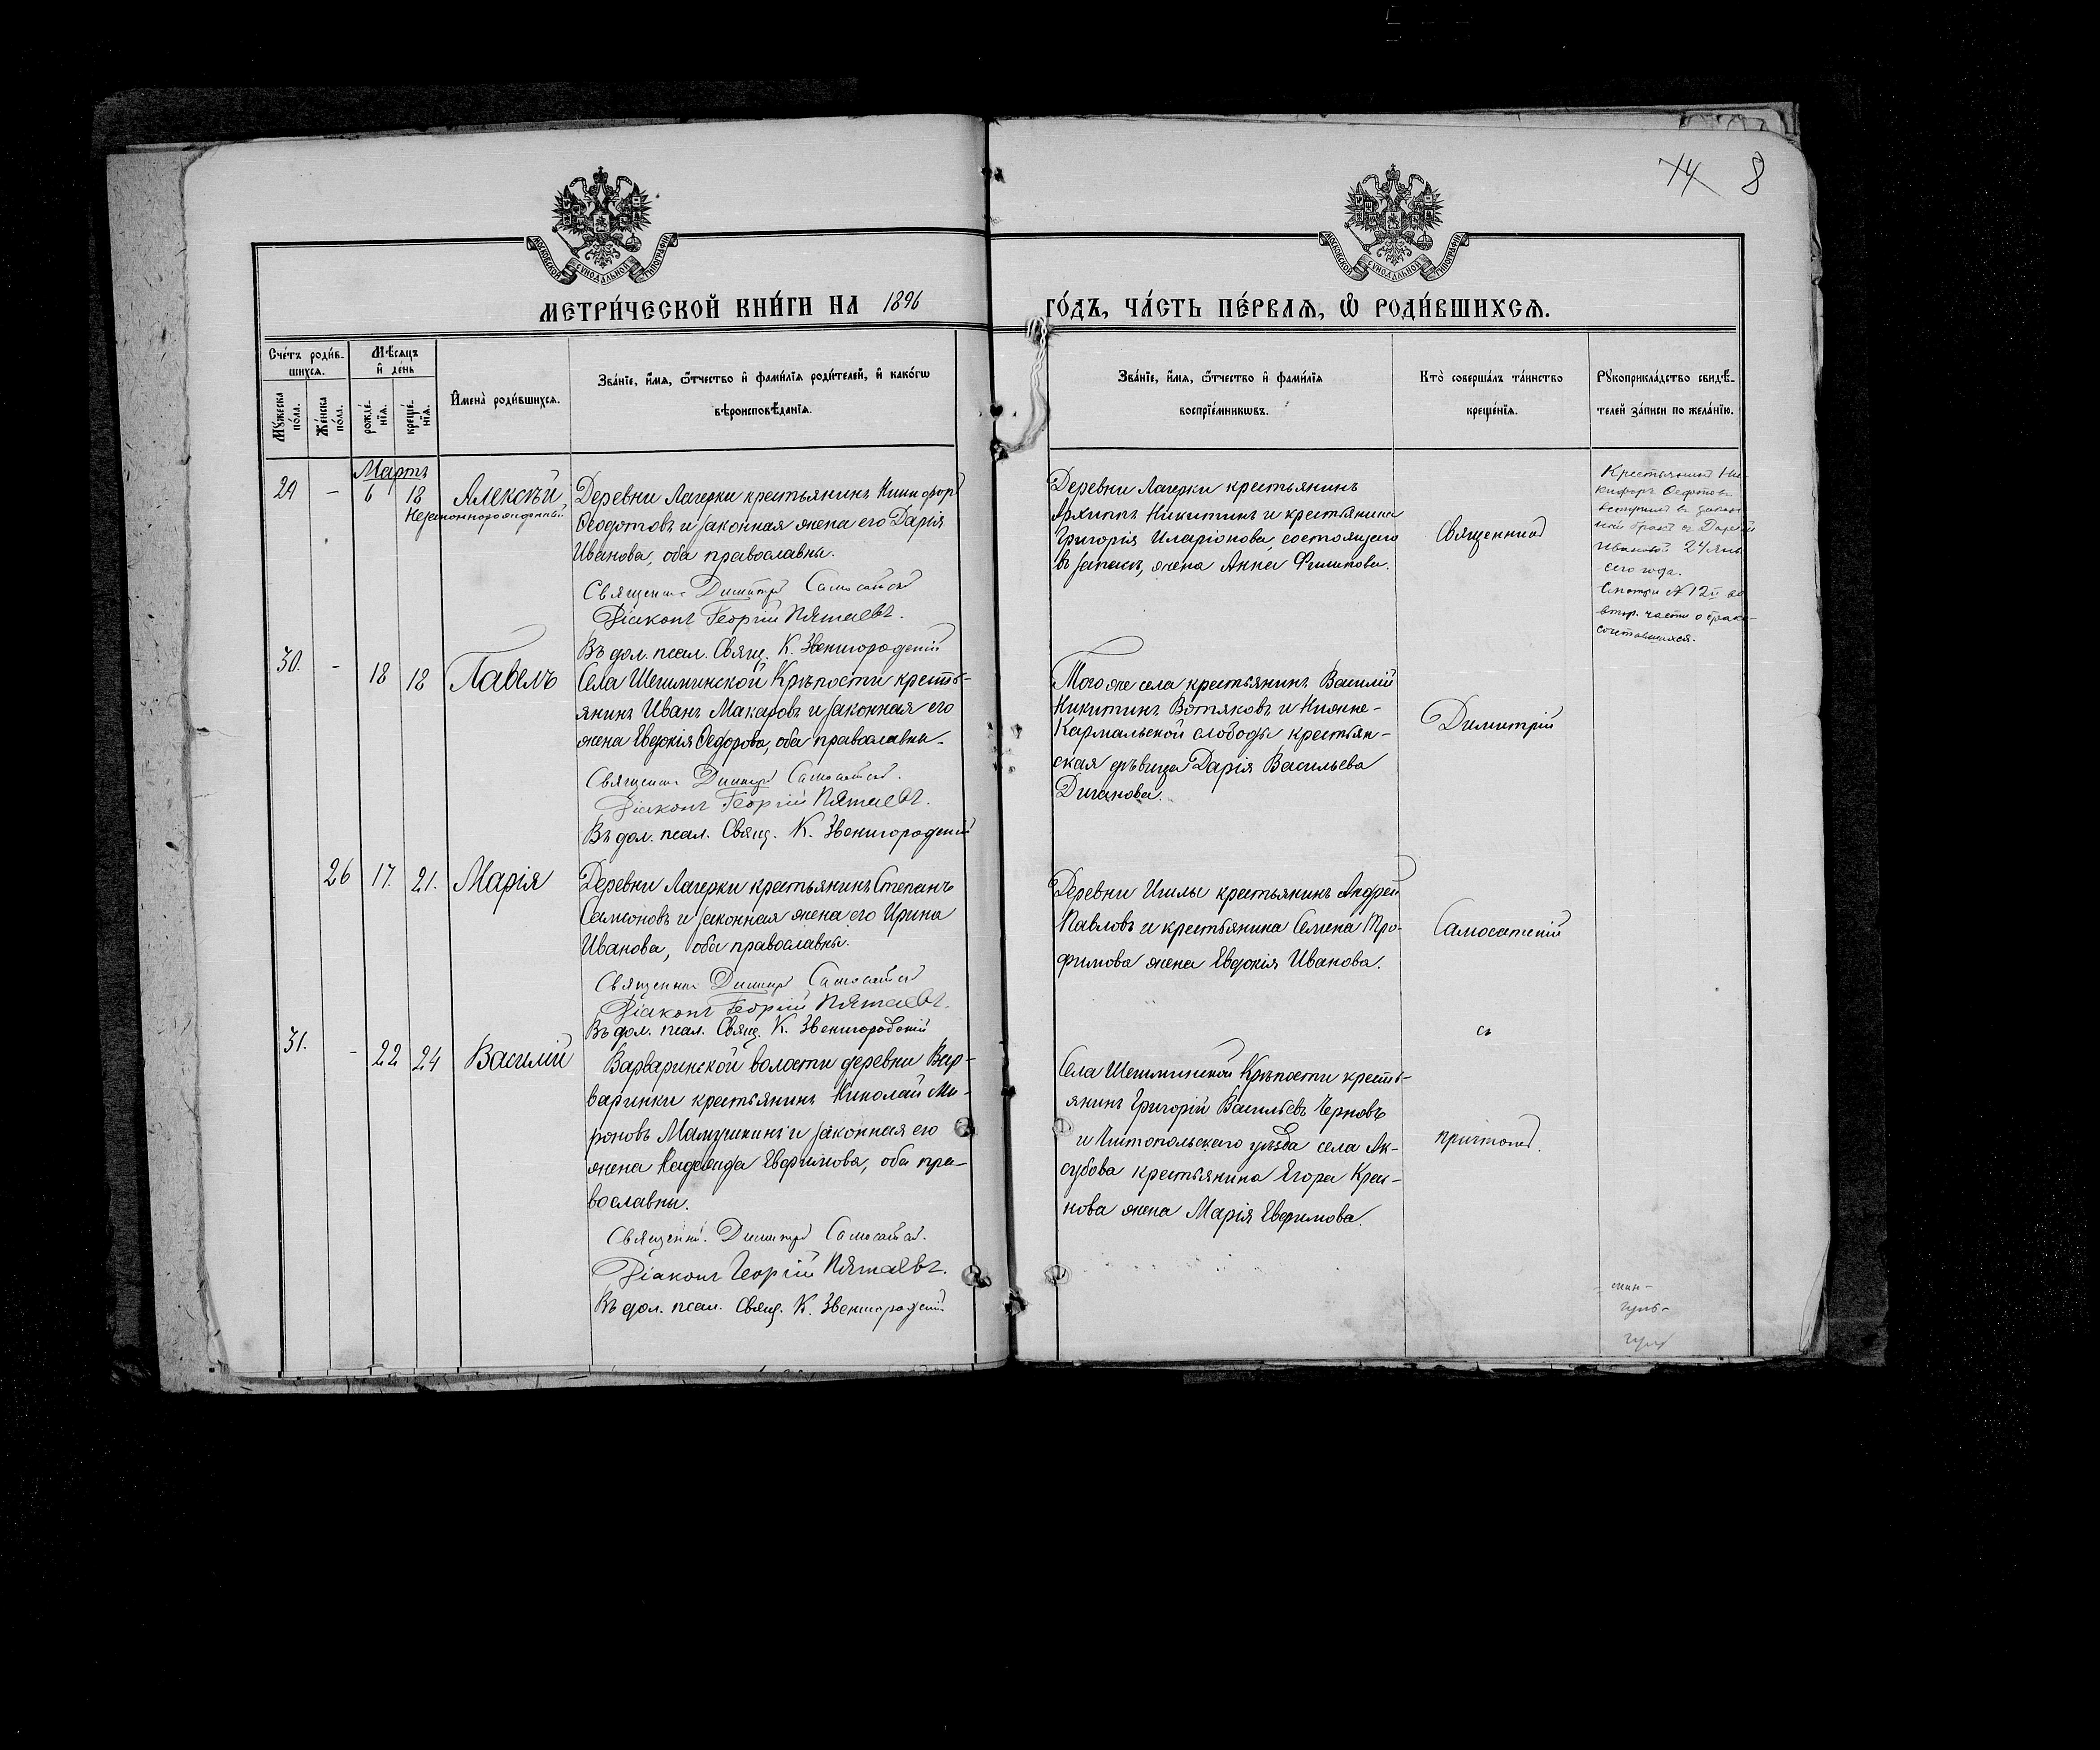 74 8
МОСКОВСКОЙ СУНОДАЛЬНОЙ ТИПОГРАФІИ
МОСКОВСКОЙ СУНОДАЛЬНОЙ ТИПОГРАФІИ
МЕТРИ́ЧЕСКОЙ КНИ́ГИ НА 1896
ГО́ДЪ, ЧА́СТЬ ПЕ́РВАѦ, Ѡ҆ РОДИ́ВШИХСѦ.
Сче́тъ роди́в-
шихсѧ.
Мѣ́сѧцъ
и҆ де́нь
Мꙋ́жеска по́ла.
Же́нска по́ла.
рожде́-
нїѧ.
креще́-
нїѧ.
И҆мена̀ роди́вшихсѧ.
Зва́нїе, и҆́мѧ, ѻ҆́тчество и҆ фами́лїѧ роди́телей, и҆ како́гѡ
вѣроисповѣ́данїѧ.
Зва́нїе, и҆́мѧ, ѻ҆́тчество и҆ фами́лїѧ
воспрїе́мникѡвъ.
Кто̀ соверша́лъ та́инство
креще́нїѧ.
Рꙋкоприкла́дство свидѣ́-
телей за́писи по жела́нїю.
Мартъ
29 – 6 18 Алексѣй
Незаконнорожденный
Деревни Лагерки крестьянинъ Никифоръ
Ѳеодотовъ и законная жена его Дарія
Иванова, оба православны.
Священникъ Димитрій Самосатскій
Діаконъ Георгій Пятаевъ.
Въ дол. псал. Свящ. К. Звенигородскій
Деревни Лагерки крестьянинъ
Архипъ Никитинъ и крестьянина
Григорія Иларіонова, состоящаго
въ запасѣ, жена Анна Филипова.
Священникъ
Крестьянинъ Ни-
кифоръ Ѳедотовъ
вступилъ въ закон-
ный бракъ съ Дарьей
Ивановой 24 янв.
сего года.
Смотри № 12й во
втор. части о брако-
сочетавшихся.
30. – 18 18 Павелъ
Села Шешминской Крѣпости кресть-
янинъ Иванъ Макаровъ и законная его
жена Евдокія Ѳедорова, оба православны.
Священникъ Димитрій Самосатскій.
Діаконъ Георгій Пятаевъ.
Въ дол. псал. Свящ. К. Звенигородскій
Того же села крестьянинъ Василій
Никитинъ Вотяковъ и Нижне-
Кармальской слободы крестьян-
ская дѣвица Дарія Васильева
Диганова.
Димитрій
26 17. 21. Марія
Деревни Лагерки крестьянинъ Степанъ
Самсоновъ и законная жена его Ирина
Иванова, оба православны.
Священникъ Димитрій Самосатскій
Діаконъ Георгій Пятаевъ.
Въ дол. псал. Свящ. К. Звенигородскій
Деревни Иглы крестьянинъ Андрей
Павловъ и крестьянина Семена Тро-
фимова жена Евдокія Иванова.
Самосатскій
съ
31. – 22 24 Василій
Варваринской волости деревни Вар-
варинки крестьянинъ Николай Ми-
роновъ Мамзинъ и законная его
жена Надежда Евфимова, оба пра-
вославны.
Священникъ. Димитрій Самосатскій.
Діаконъ Георгій Пятаевъ.
Въ дол. псал. Свящ. К. Звенигородскій.
Села Шешминской Крѣпости кресть-
янинъ Григорій Васильевъ Черновъ
и Чистопольскаго уѣзда села Ак-
субова крестьянина Егора Крас-
нова жена Марія Евфимова.
причтомъ.